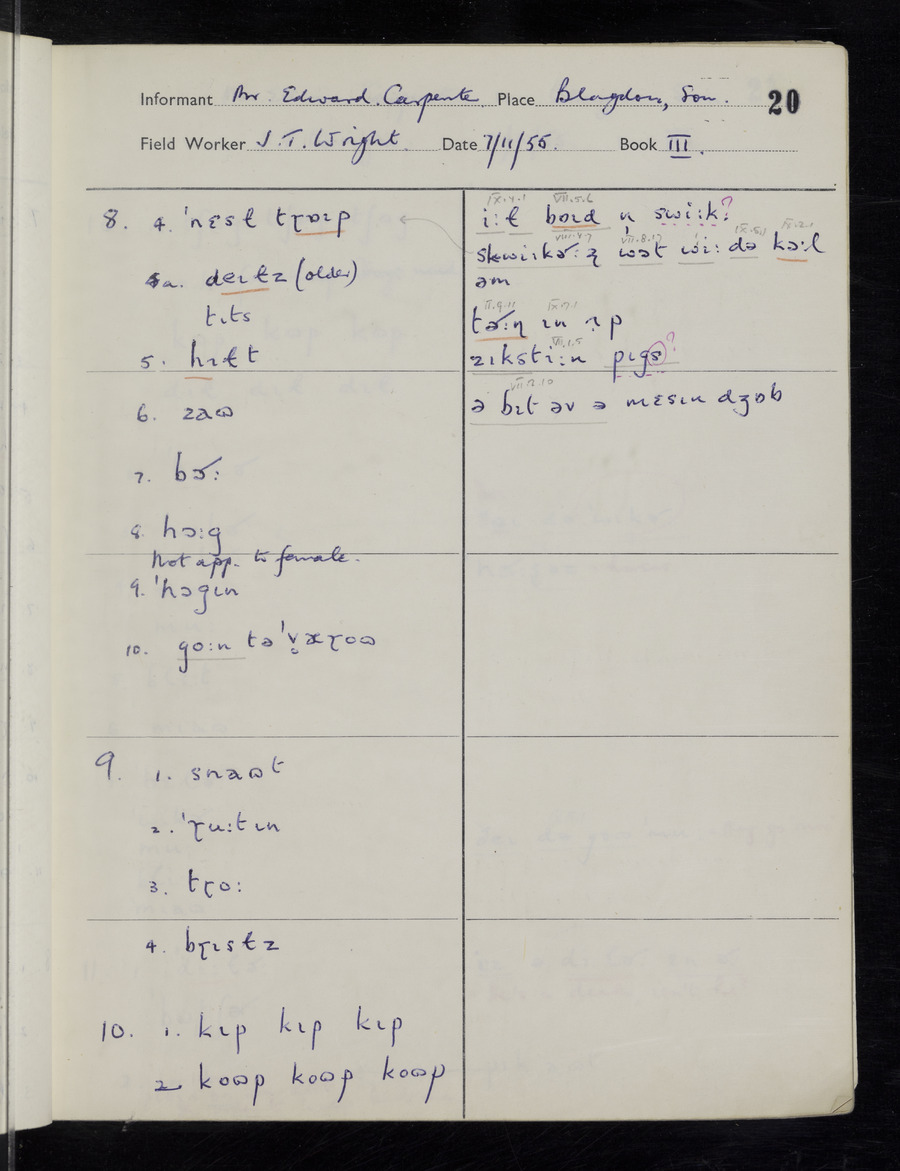 Informant Mr. Edward Carpente Place Blagdon, Som. 20
Field Worker J.T. Wright Date 7/11/56. Book III.
8. 4. ˈnɛsɫ tɽɒɪp
5a. deɪɫz (older)
tɪts
5. hɪɫt
6. zaɷ
7. bɚ:
8. hɔ:g
Not app. to female.
9. ˈhɔgɪn
10. go:n təˈv̥æɽoɷ
9. 1. snaɷt
2. ˈɽu:tɪn
3. tɽo:
4. bɽɪsɫz
10. 1. kɪp kɪp kɪp
2 kɷp kɷp kɷp
IX.4.1 VII.5.6
i:ɫ bɒɪd n̩ swi:k?
VIII.4.7 VII.8.17
skwɪkɚ:ɽ wɒt wi: də kɔ:l
əm
II.9.11 IX.7.1
tɚ:n ɪn ɪp
VII.1.5
zɪksti:n pɪgs?
ə bɪt əv ə mɛsɪn dʒɒb